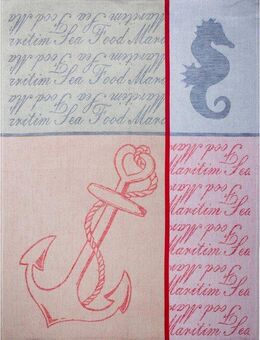 Maritim Sea Food Mar
ritim Sea Food Mari
Maritim Sea Food Mar
ritim Sea Food Mari
Food Mar
Maritim Sea
Food Mar
Maritim Sea
Food Mar
Maritim Sea
Food Mar
Maritim Sea